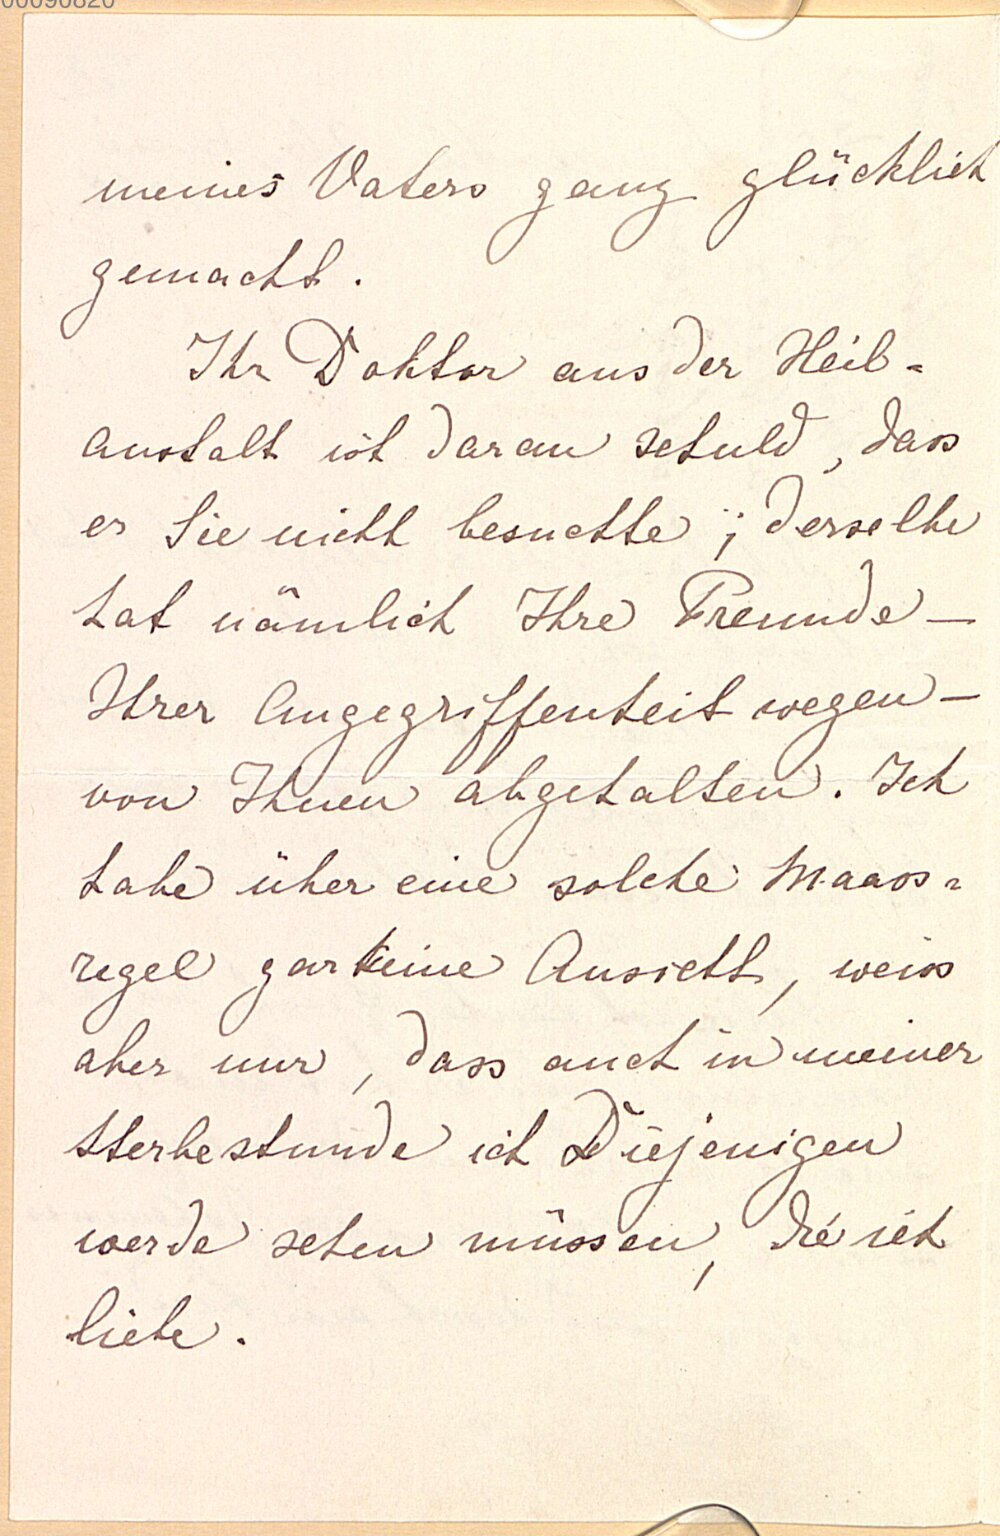 00090820
meines Vaters ganz glücklich
gemacht.
Ihr Doktor aus der Heil-
anstalt ist daran schuld, dass
er Sie nicht besuchte; derselbe
hat nämlich Ihre Freunde —
Ihrer Angegriffenheit wegen —
von Ihnen abgehalten. Ich
habe über eine solche Maas-
regel gar keine Ansicht, weiss
aber nur, dass auch in meiner
Sterbestunde ich Diejenigen
werde sehen müssen, die ich
liebe.